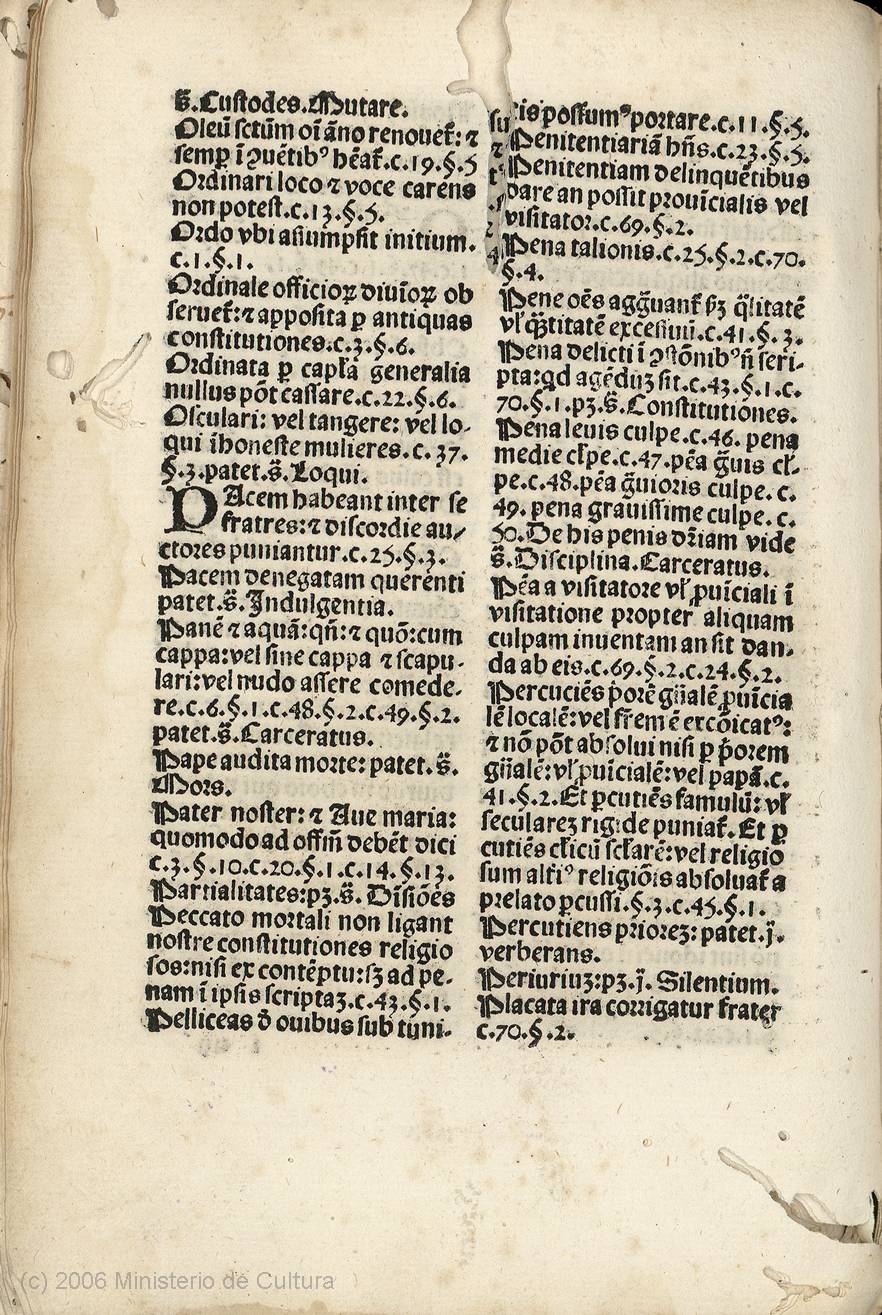 s̈.Custodes.Mutare.
Oleū sctūm oī āno renouet̄: ⁊
semp̲ ī ꝯuētibꝰ hēat̄.c.19.§.5
Ordinari loco ⁊ voce carens
non potest.c.13.§.5.
Ordo vbi assumpsit initium.
c.1.§.1.
Ordinale officioꝝ diuīoꝝ ob
seruet̄:⁊ apposita ꝑ antiquas
constitutiones.c.3.§.6.
Ordinata ꝑ capła generalia
nullus pōt cassare.c.22.§.6.
Osculari: vel tangere: vel lo-
qui īhoneste mulieres.c.37.
§.3.patet.s̈.Loqui.
PAcem habeant inter se
fratres:⁊ discordie au/
ctores puniantur.c.25.§.3.
Pacem denegatam querenti
patet.s̈.Indulgentia.
Panē ⁊ aquā:qn̄:⁊ quō:cum
cappa:vel sine cappa ⁊ scapu-
lari:vel nudo assere comede-
re.c.6.§.1.c.48.§.2.c.49.§.2.
patet.s̈.Carceratus.
Pape audita morte: patet.s̈.
Mors.
Pater noster: ⁊ Aue maria:
quomodo ad offm̄ debēt dici
c.3.§.10.c.20.§.1.c.14.§.13.
Partialitates:pꝫ.s̈. Dīsiōes
Peccato mortali non ligant
nostre constitutiones religio
sos:nisi ex contēptu:sꝫ ad pe-
nam ī ipsis scriptaꝫ.c.43.§.1.
Pelliceas ð ouibus sub tuni-
is possumꝰ portare.c.11.§.5.
Penitentiariā hn̄s.c.23.§.5.
Penitentiam delinquētibus
dare an possit prouīcialis vel
visitator.c.69.§.2.
Pena talionis.c.25.§.2.c.70.
§.4.
Pene oēs agg̈uant̄ ẜꝫ q̈litatē
vł q̈titatē excessiuū.c.41.§.3.
Pena delicti ī ꝯstōnibꝰ n̄ scri-
pta:qd agēduꝫ sit.c.43.§.1.c.
70.§.1.pꝫ.s̈.Constitutiones.
Pena leuis culpe.c.46. pena
medie cłpe.c.47.pēa g̈uis cł-
pe.c.48.pēa g̈uioris culpe.c.
49. pena grauissime culpe.c.
50.De his penis dr̄iam vide
s̈.Disciplina.Carceratus.
Pēa a visitatore vł ꝓuīciali ī
visitatione propter aliquam
culpam inuentam an sit dan-
da ab eis.c.69.§.2.c.24.§.2.
Percuciēs p̄orē gn̄alē ꝓuīcia
lē localē:vel fr̄em ē excōicatꝰ:
⁊ nō pōt absolui nisi ꝑ p̄orem
gn̄alē:vł ꝓuīcialē:vel papā.c.
41.§.2.Et ꝑcutiēs famulū: vł
seculareꝫ rigide puniat̄.Et ꝑ
cutiēs cłicū scłarē:vel religio
sum alt̄iꝰ religiōis absoluat̄ a
prelato ꝑcussi.§.3.c.45.§.1.
Percutiens prioreꝫ: patet.j̈.
verberans.
Periuriuꝫ:pꝫ.j̈. Silentium.
Placata ira corrigatur frater
c.70.§.2.
(c) 2006 Ministerio de Cultura